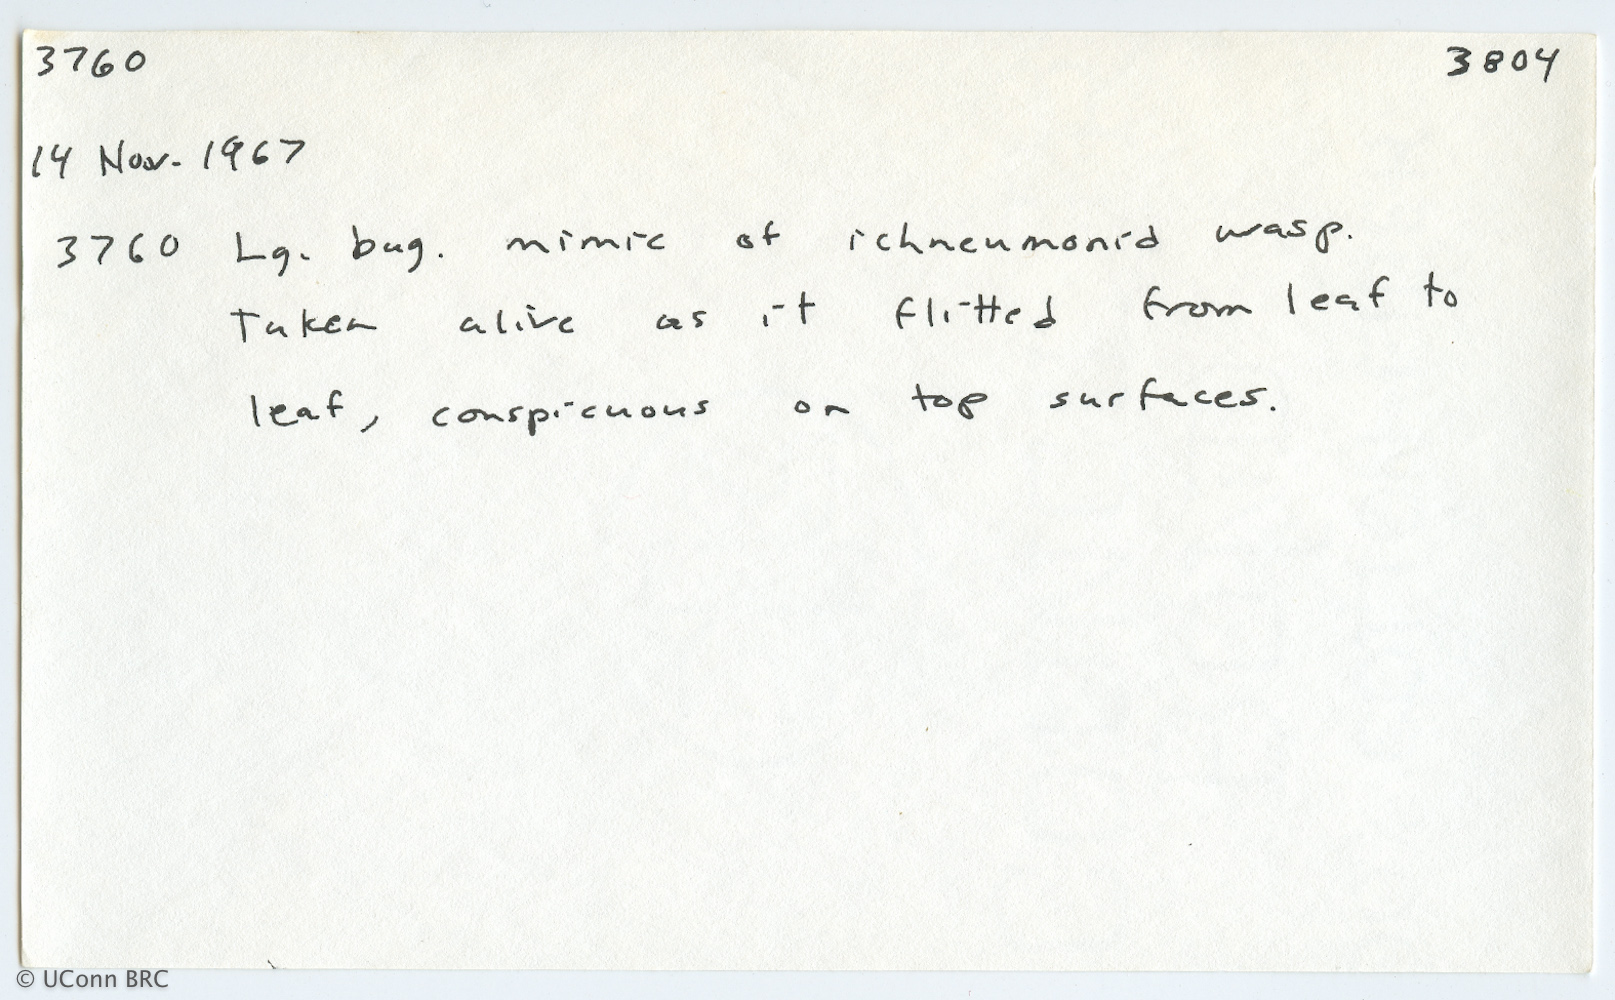 3760 3804
14 Nov. 1967
3760 Lg. bug. mimic of ichneumonid wasp.
Taken alive as it flitted from leaf to
leaf, conspicuous on top surfaces.
© UConn BRC